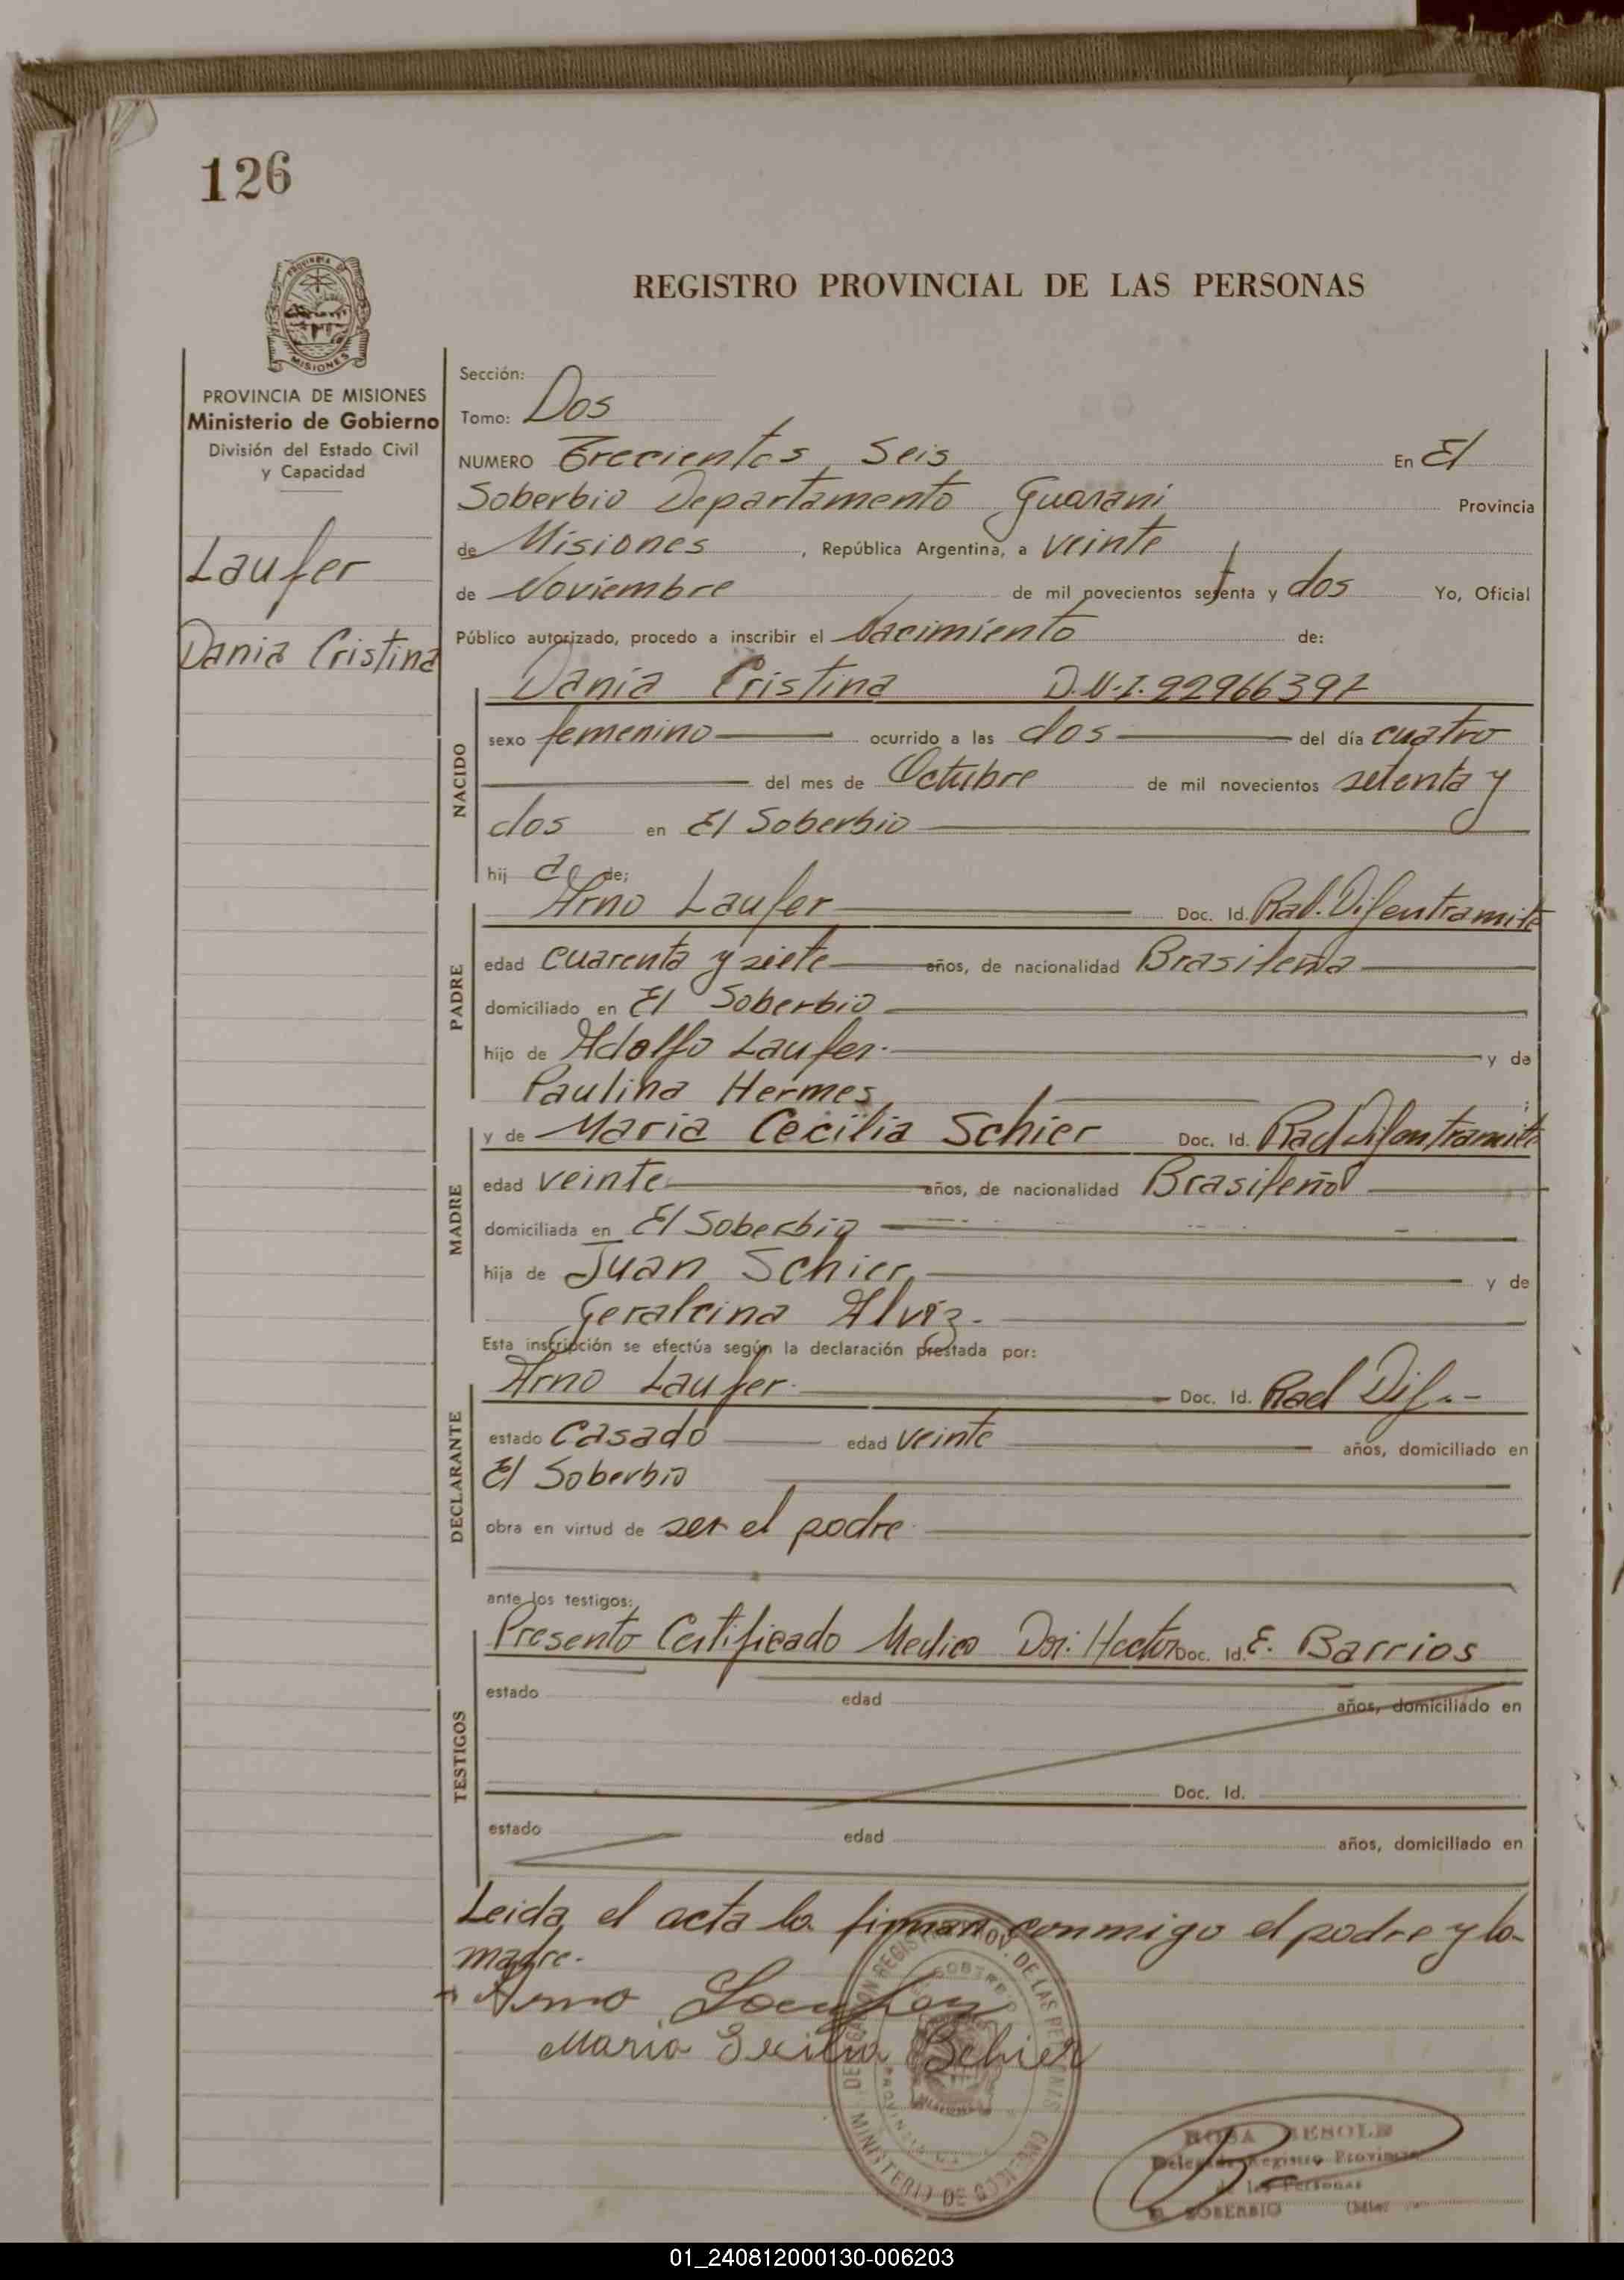 126
PROVINCIA DE
MISIONES
REGISTRO PROVINCIAL DE LAS PERSONAS
PROVINCIA DE MISIONES
Ministerio de Gobierno
División del Estado Civil
y Capacidad
Laufer
Dania Cristina
Sección:
Tomo: Dos
NUMERO Trecientos Seis En El
Soberbio Departamento Guarani Provincia
de Misiones, República Argentina, a veinte
de Noviembre de mil novecientos setenta y dos Yo, Oficial
Público autorizado, procedo a inscribir el Nacimiento de:
NACIDO
Dania Cristina D.N.I. 22966397
sexo femenino ocurrido a las dos del día cuatro
del mes de Octubre de mil novecientos setenta y
dos en El Soberbio
hij a de;
PADRE
Arno Laufer Doc. Id. Rad. Dif en tramite
edad cuarenta y siete años, de nacionalidad Brasileña
domiciliado en El Soberbio
hijo de Adolfo Laufer. y de
Paulina Hermes ;
MADRE
y de Maria Cecilia Schier Doc. Id. Rad Dif en tramite
edad veinte años, de nacionalidad Brasileña
domiciliada en El Soberbio
hija de Juan Schier, y de
Geralcina Alviz.
Esta inscripción se efectúa según la declaración prestada por:
DECLARANTE
Arno Laufer. Doc. Id. Rad Dif
estado Casado edad veinte años, domiciliado en
El Soberbio
obra en virtud de ser el padre
ante los testigos:
TESTIGOS
Presento Certificado Medico Dor: Hector Doc. Id. E. Barrios
estado edad años, domiciliado en
Doc. Id.
estado edad años, domiciliado en
Leida el acta la firman conmigo el padre y la
madre.
Arno Laufer
Maria Cecilia Schier
MINISTERIO DE
DE LAS
SOBERBIO
PROVINCIA
MISIONES
ROSA
Registro Provincial
de las Personas
SOBERBIO
01_240812000130-006203